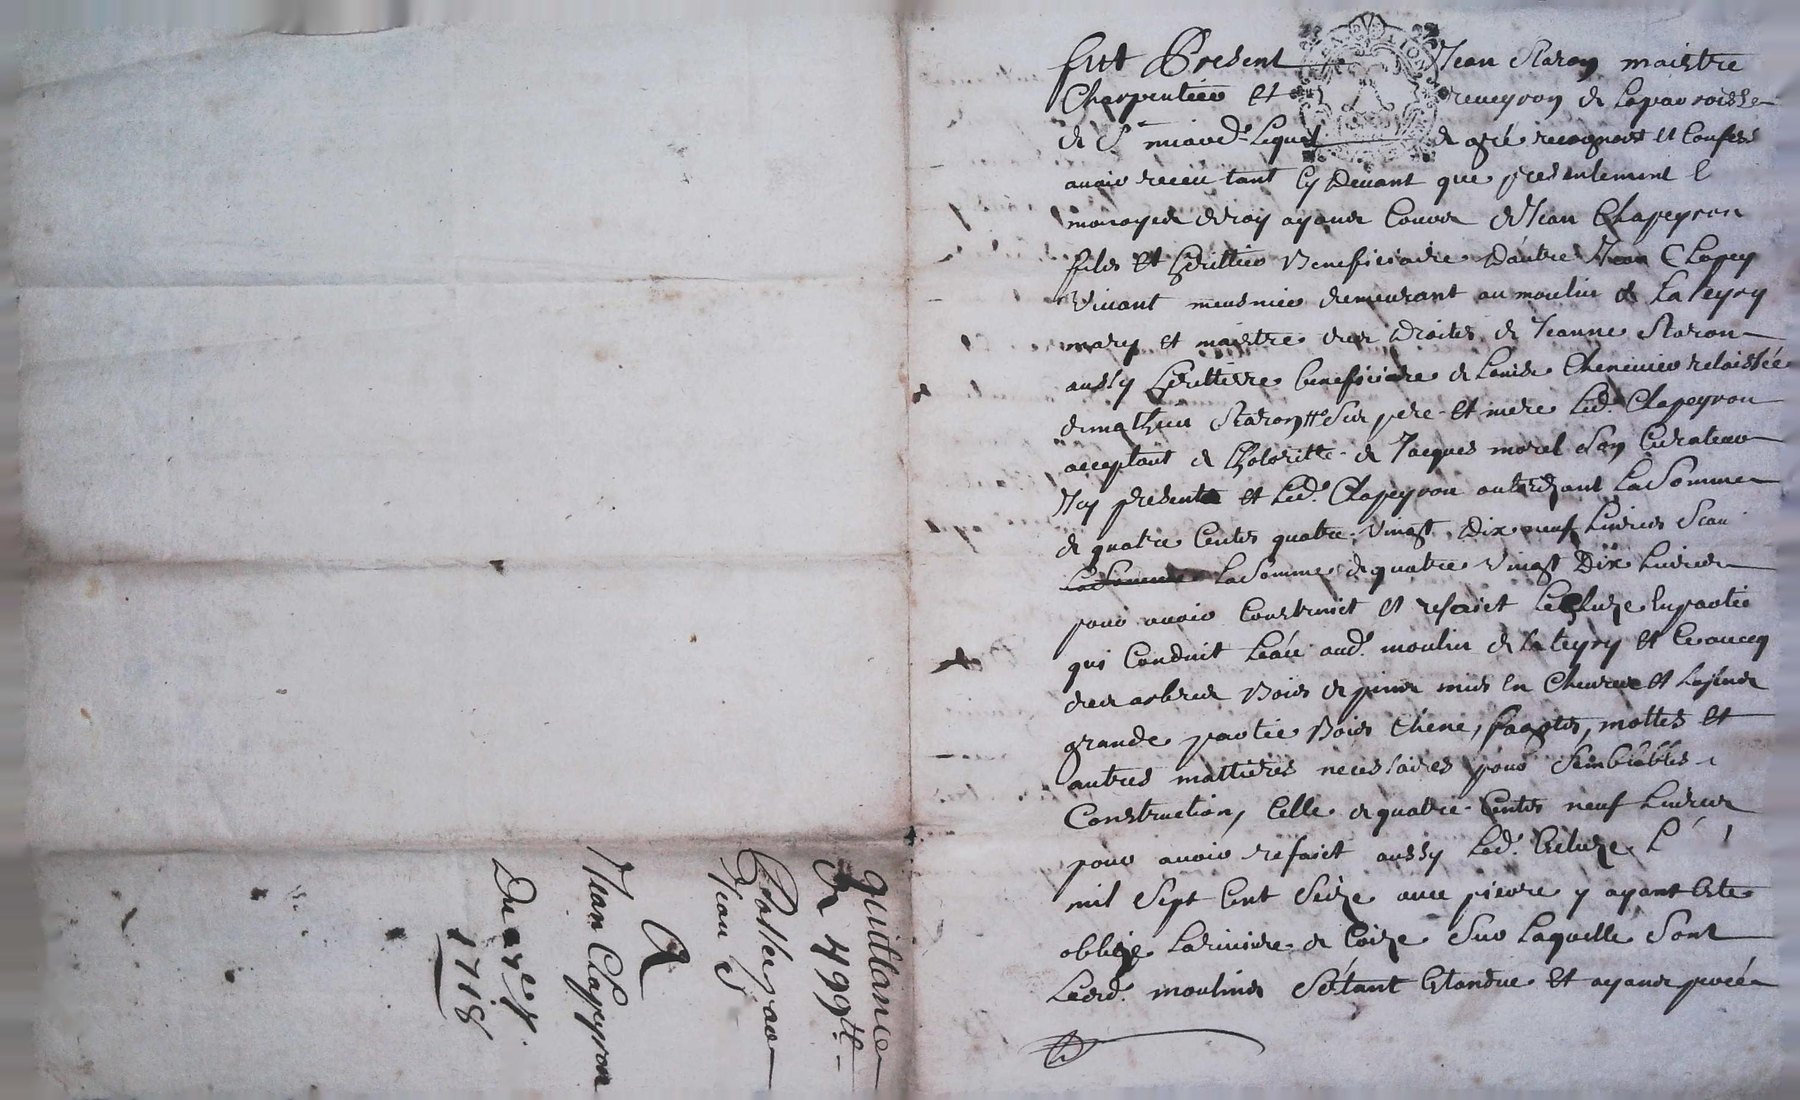 fut Present Jean Staron maistre
Charpentier et reveyron de laparroisse
de St miard. Lequel de gré recognoit et Confesse
avoir receu tant Cy Devant que presentement
monoyes de roy ayans Cours de Jean Chapeyron
fils et heritier Beneficiaire D'autre Jean Clapey
Vivant meusnier demeurant au moulin de Lateyry
mary et maistre des Droites de Jeanne Staron
aussy heritiere beneficiaire de Louise relaissée
de mathieu Staron ses pere et mere Led. Clapeyron
acceptant de Jacques morel Son Curateur
Icy present et Led. Clapeyron autorizant La Somme
de quatre Cents quatre Vingt Dix neuf Livres Scav
La Somme La Somme de quatre Vingt Dix Livres
pour avoir Construict et refaict Lecluze en partie
qui Conduit Leau aud. moulin de Lateyry et avecq
des arbres Bois de pins mis en et
grande partie Bois Chene, fagots, mottes et
autres mattieres necessaires pour Semblables
Construction, Celle de quatre Cents neuf Livres
pour avoir refaict aussy Lad. Ecluze L
mil Sept Cent Seize avec pierre y ayant Este
obligé La riviere de Coize Sur Laquelle Sont
Lesd. moulins S'étant Etandue et ayans
quittance
de 499 tt
Jean S
A
Jean Clapeyron
Du
1718